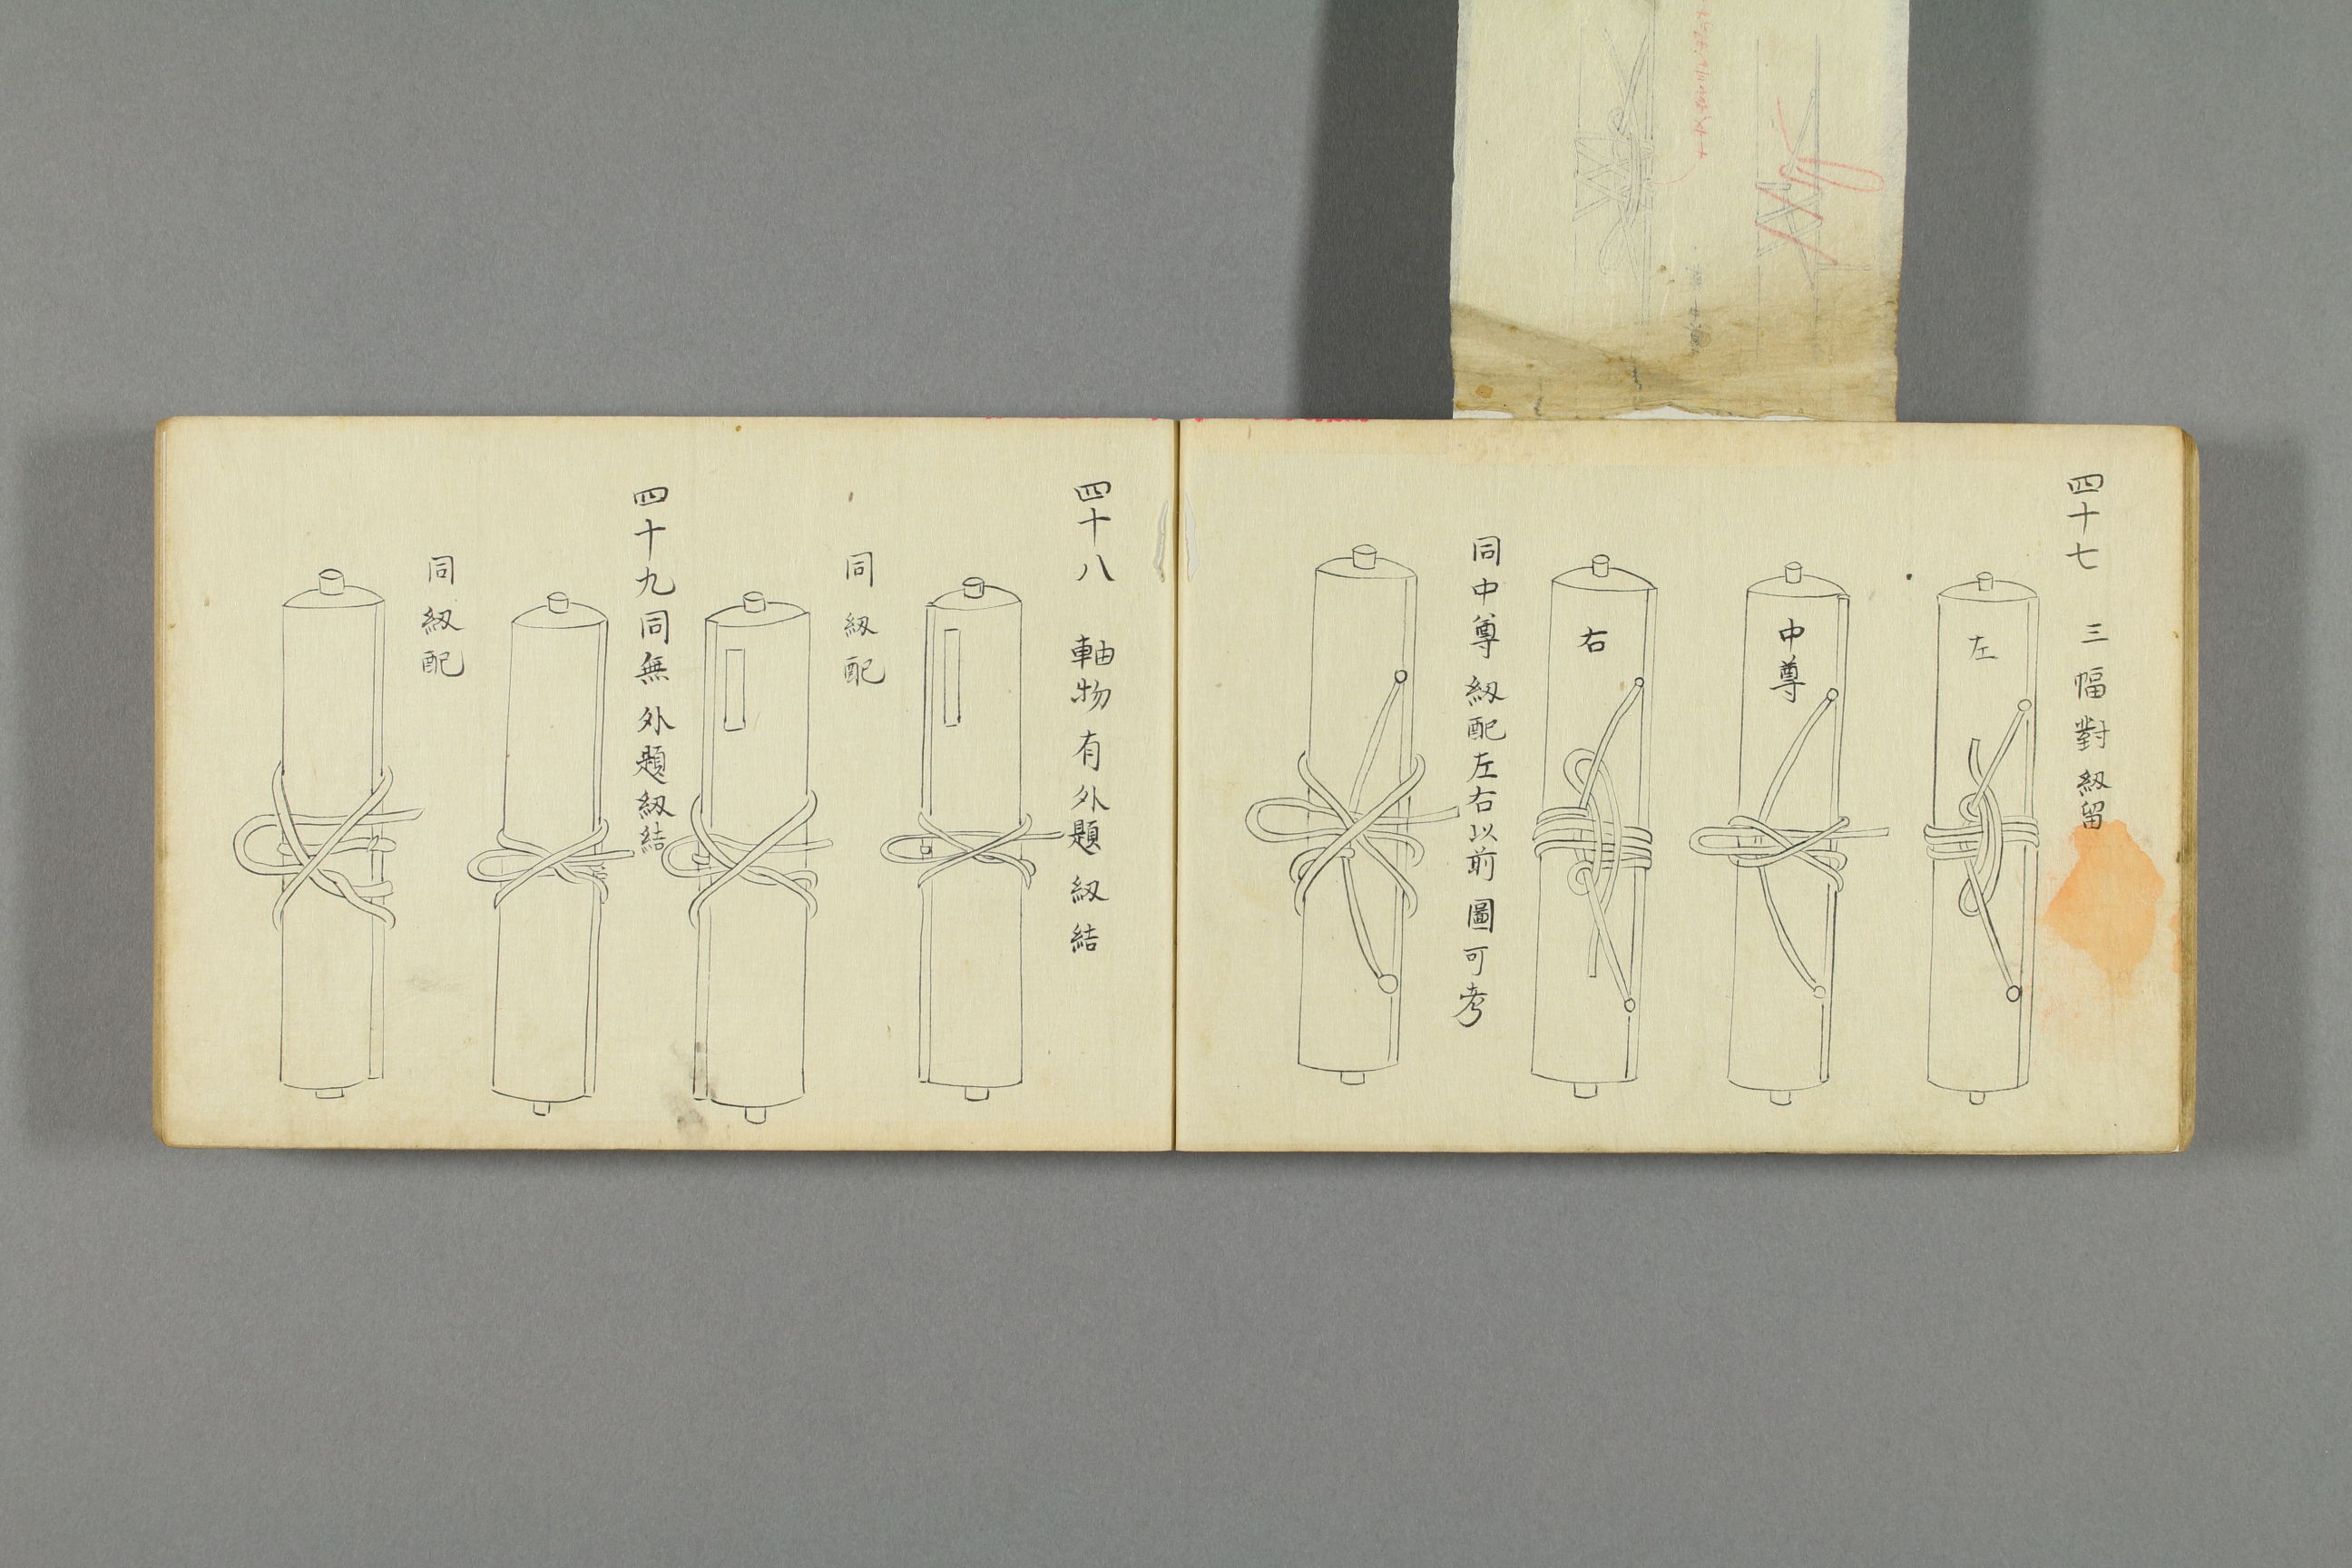 四十七 三幅對紉留
左
中尊
右
同中尊紉配左右以前圖可考
四十八 軸物有外題紉結
同紉配
四十九同無外題紉結
同紉配